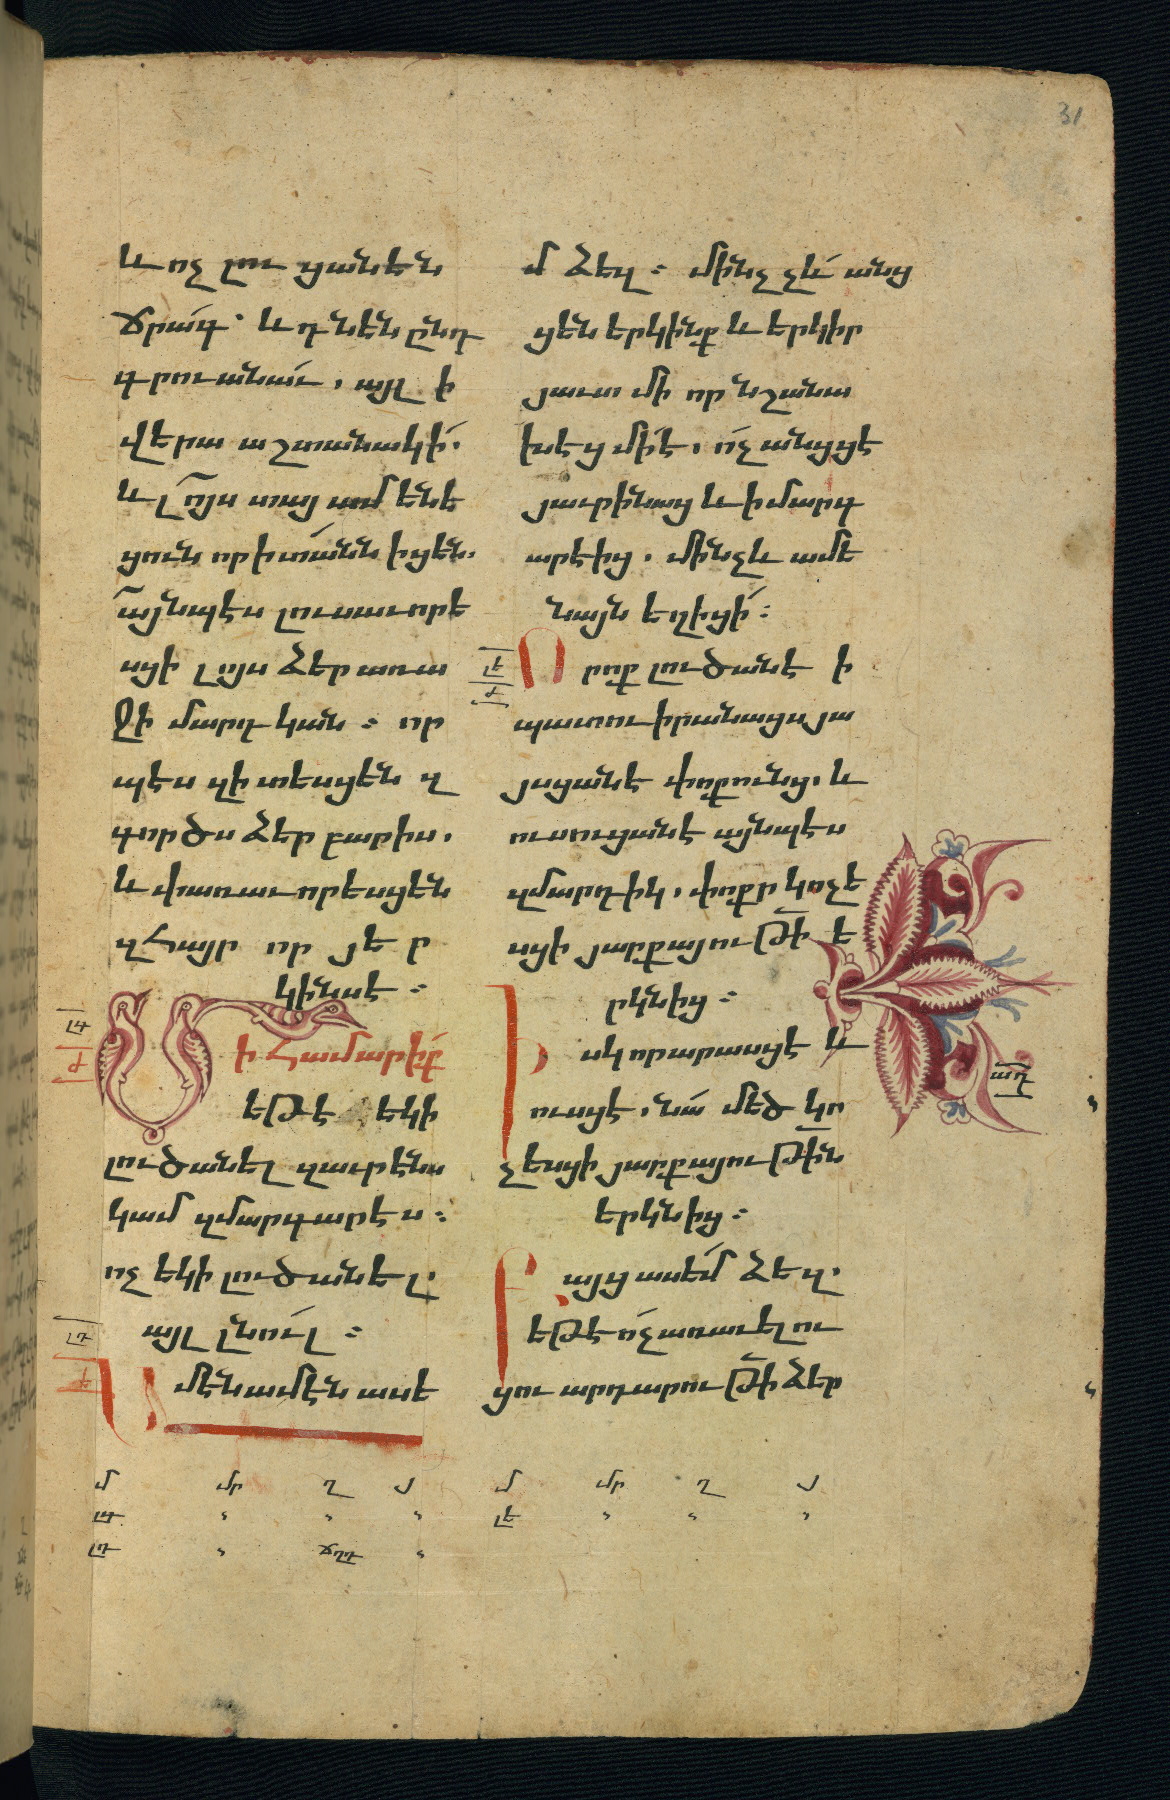 31
և ոչ լուցանեն
ճրագ՝ և դնեն ընդ
գրուանաւ, այլ ի
վերա աշտանակի՛.
և լոյս տայ ամենե
ցուն որ ի տանն իցեն.
այնպէս լուսաւորե
սցի լոյս ձեր առա
ջի մարդկան ։ որ
պէս զի տեսցեն զ
գործս ձեր բարիս.
և փառաւորեսցեն
զհայր որ յեր
կինսէ ։
լգ
Ժ
Մի համարիք
եթէ եկի
լուծանել զաւրէնս
կամ զմարգարէս ։
ոչ եկի լուծանել.
այլ լնուլ ։
լդ
Ժ
Ամէն ամէն ասե
մ ձեզ ։ մինչչև անց
ցեն երկինք և երկիր
յաւտ մի որ նշանա
խեց մի է, ոչ անցցէ
յաւրինաց և ի մարգ
արէից. մինչև ամե
նայն եղիցի ։
լե
Ժ
Որ ոք լուծանէ ի
պատուիրանացս յա
յսցանէ փոքունց. և
ուսուցանէ այնպէս
զմարդիկ, փոքր կոչե
սցի յարքայութի ե
րկնից ։
Իսկ որ արասցէ և
ուսցէ, նա մեծ կո
չեսցի յարքայութին
երկնից ։
Բայց ասեմ ձեզ.
եթէ ոչ առաւելու
ցու արդարութի ձեր
մ մր ղ յ մ մր ղ յ
լգ լե
լդ ճղդ